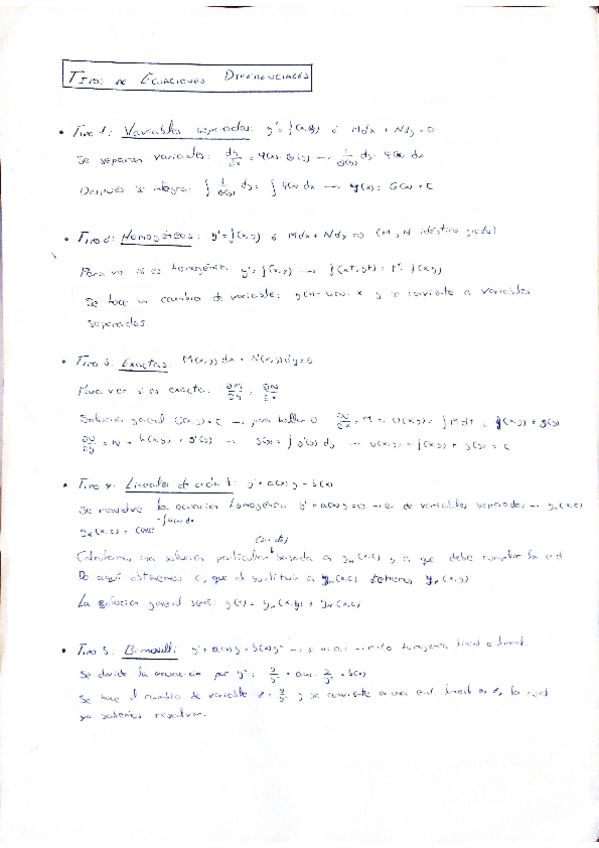 TIPOS DE ECUACIONES DIFERENCIALES
• Tipo 1: Variables separadas: y' = f(x,y) ó Mdx + Ndy = 0
Se separan variables: dy/dx = φ(x)·θ(y) → 1/θ(y) dy = φ(x) dx
Después se integra: ∫ 1/θ(y) dy = ∫ φ(x) dx → y(x) = G(x) + C
• Tipo 2: Homogéneas: y' = f(x,y) ó Mdx + Ndy = 0 (M y N idéntico grado)
Para ver si es homogénea: y' = f(x,y) → f(xt,yt) = tⁿ f(x,y)
Se hace un cambio de variable: y(x) = u(x)·x y se convierte a variables
separadas.
• Tipo 3: Exactas: M(x,y)dx + N(x,y)dy = 0
Para ver si es exacta: ∂M/∂y = ∂N/∂x
Solución general U(x,y) = C → para hallar U ∂U/∂x = M → U(x,y) = ∫ M dx = f(x,y) + g(y)
∂U/∂y = N = h(x,y) + g'(y) → g(y) = ∫ g'(y) dy → U(x,y) = f(x,y) + g(y) = C
• Tipo 4: Lineales de orden 1: y' + a(x)y = b(x)
Se resuelve la ecuación homogénea y' + a(x)y = 0 → e.d. de variables separadas → yₕ(x,c)
Calculamos una solución particular basada en yₕ(x,c) y a que debe cumplir la e.d.
De aquí obtenemos c, que al sustituir a yₕ(x,c) tenemos
La solución general será:
• Tipo 5: Bernoulli: y' + a(x)y = b(x)yⁿ →
Se divide la ecuación por yⁿ:
Se hace el cambio de variable y se convierte a una e.d. lineal la cual
ya sabemos resolver.